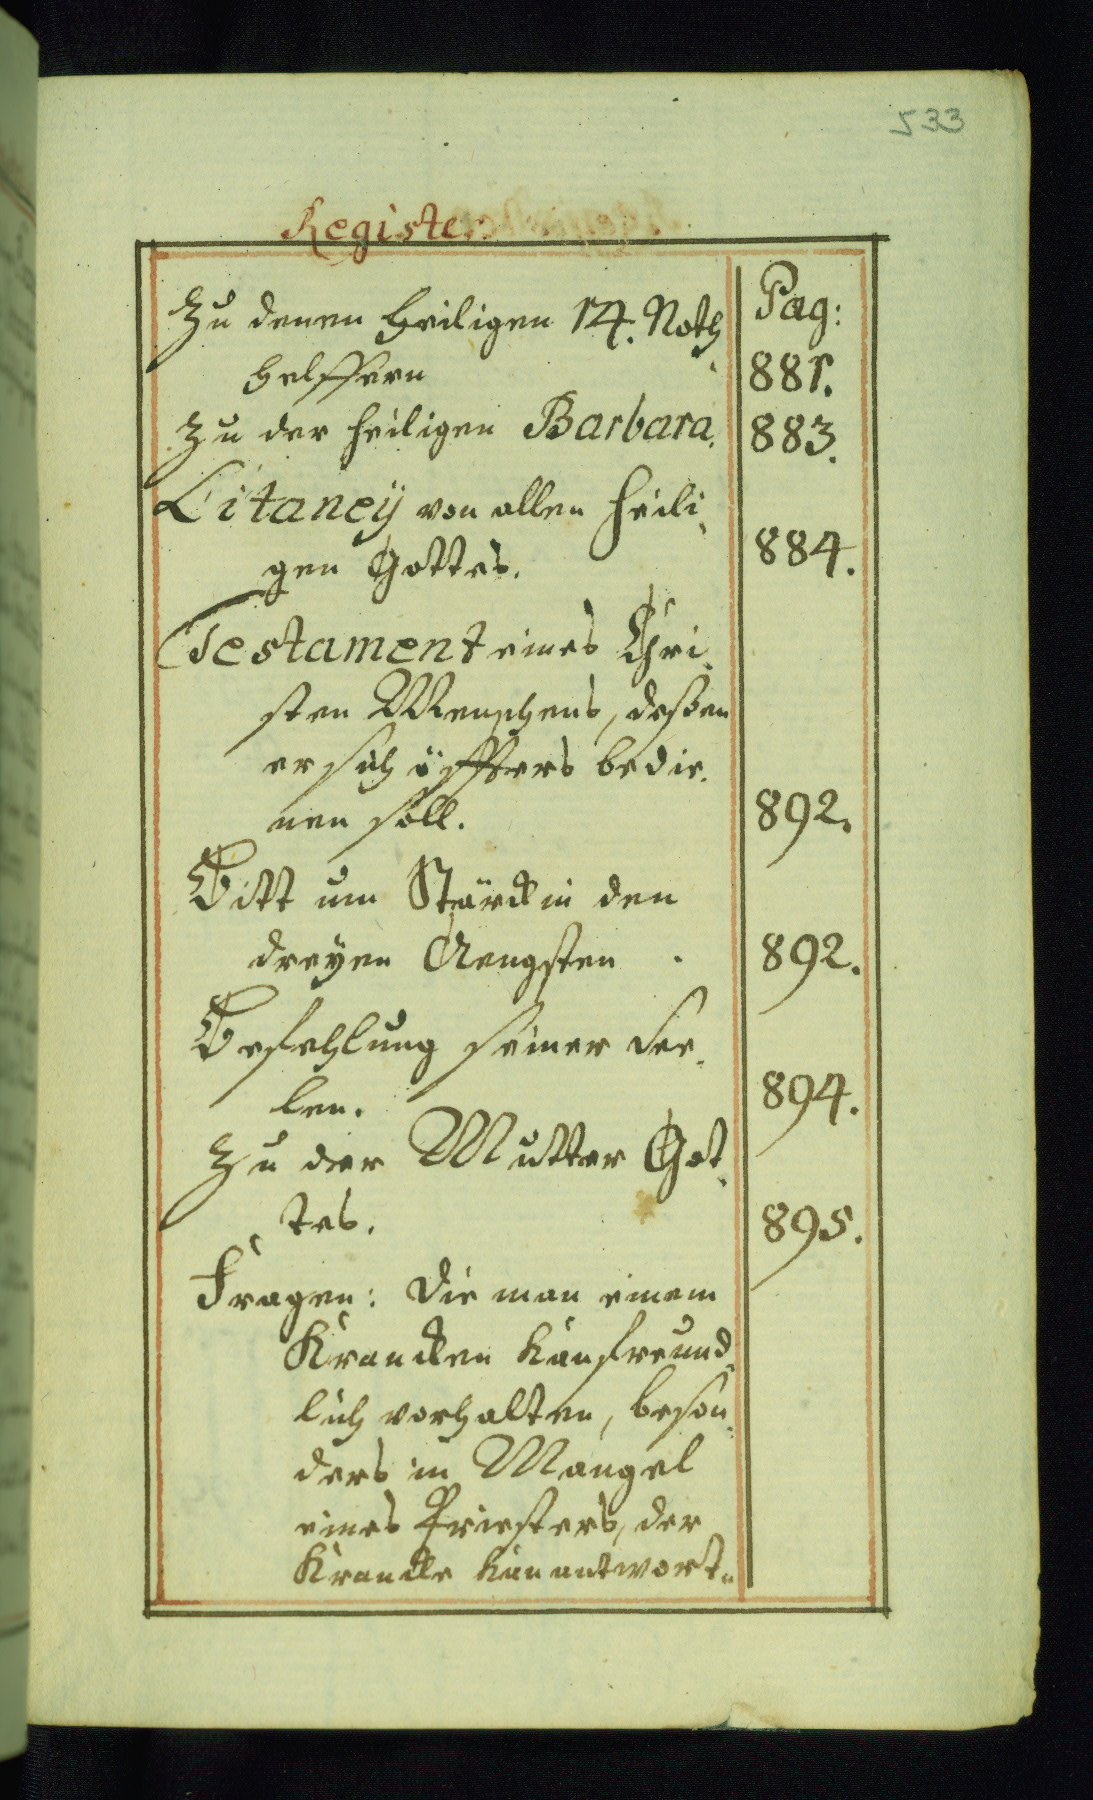 533
Register
Pag:
Zu denen Heiligen 14. Noth
helffern 881.
Zu der heiligen Barbara. 883.
Litaneÿ von allen heili-
gen Gottes. 884.
Testament eines Chri-
sten Menschens, deßen
er sich öffters bedie-
nen soll. 892.
Bitt um Stärck in den
dreyen Aengsten. 892.
Befehlung seiner See-
len. 894.
Zu der Mutter Got-
tes. 895.
Fragen: die man einem
Krancken kan freund-
lich vorhalten, beson-
ders in Mangel
eines Priesters, der
Krancke kan antwort-